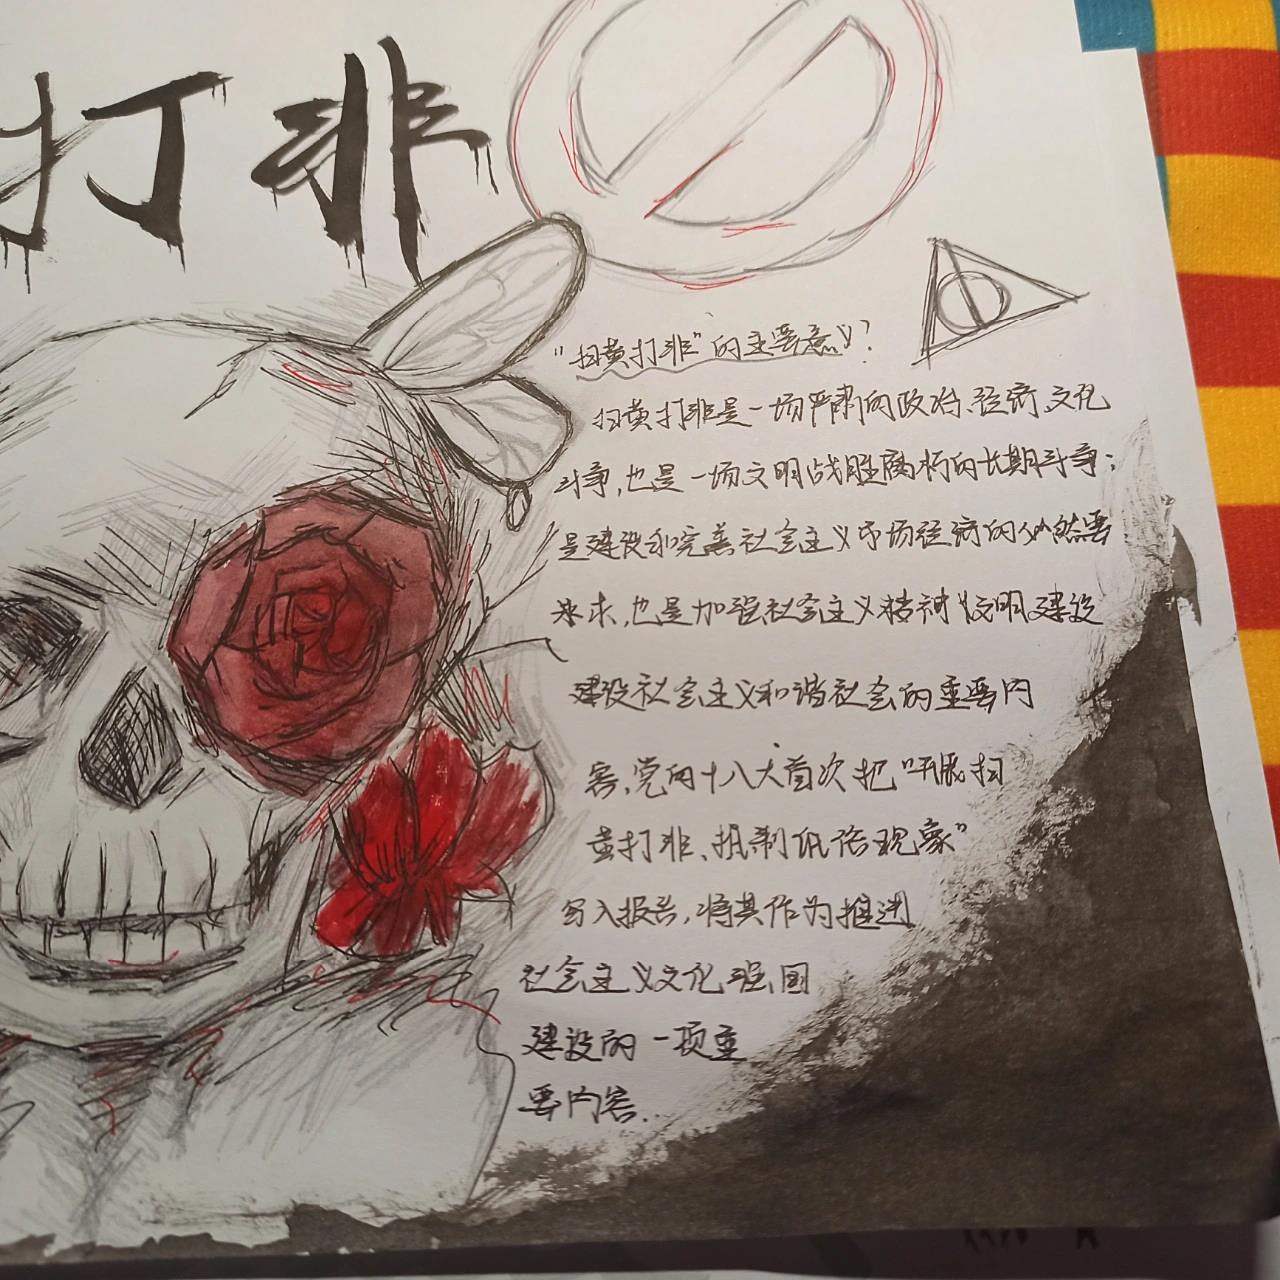 打非
"扫黄打非"的主要意义?
扫黄打非是一场严肃的政治、经济、文化
斗争,也是一场文明战胜腐朽的长期斗争;
是建设和完善社会主义市场经济的必然要
求,也是加强社会主义精神文明建设
建设社会主义和谐社会的重要内
容,党的十八大首次把"开展扫
黄打非、抵制低俗现象"
写入报告,将其作为推进
社会主义文化强国
建设的一项重
要内容.